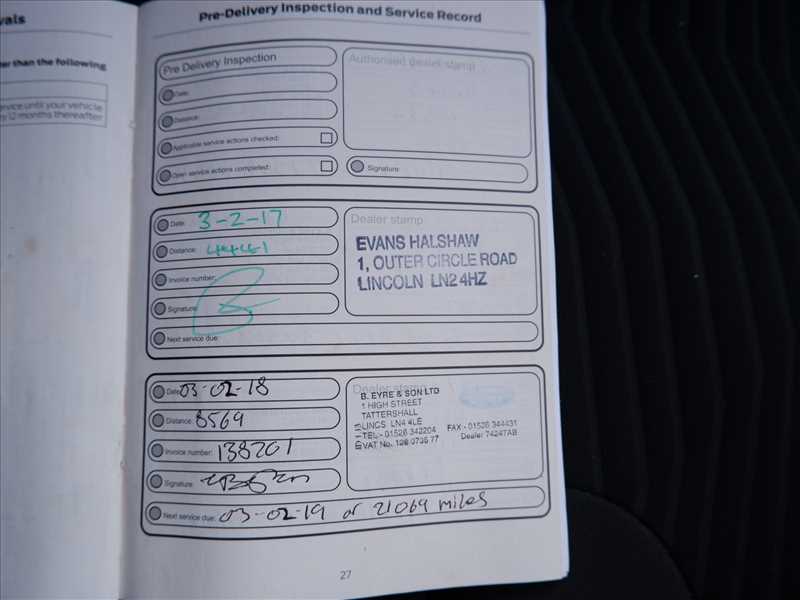 vals
her than the following
ervice until your vehicle
ry 12 months thereafter
Pre-Delivery Inspection and Service Record
Pre Delivery Inspection
Date:
Distance:
Applicable service actions checked:
Open service actions completed:
Authorised dealer stamp
Signature:
Date: 3-2-17
Distance: 4461
Invoice number:
Signature:
Next service due:
Dealer stamp
EVANS HALSHAW
1, OUTER CIRCLE ROAD
LINCOLN LN2 4HZ
Date: 03-02-18
Distance: 8569
Invoice number: 138201
Signature:
Next service due: 03-02-19 or 21069 miles
Dealer stamp
B. EYRE & SON LTD
1 HIGH STREET
TATTERSHALL
LINCS LN4 4LE
TEL:- 01526 342204 FAX - 01526 344431
VAT No. 128 0735 77 Dealer 7424TAB
27